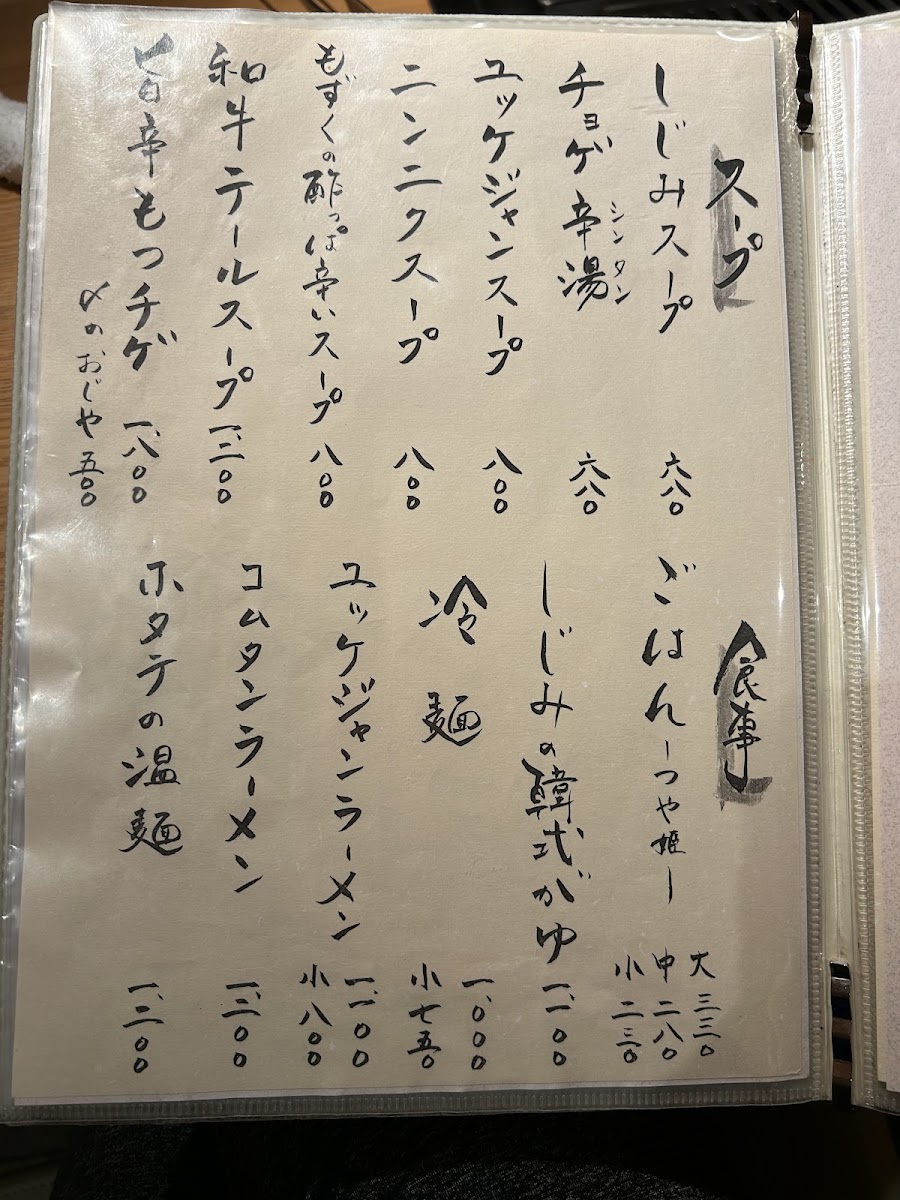 スープ
しじみスープ 六八〇
チョゲ辛湯 六八〇
シンタン
ユッケジャンスープ 八〇〇
ニンニクスープ 八〇〇
もずくの酢っぱ辛いスープ 八〇〇
和牛テールスープ 一、二〇〇
旨辛もつチゲ 一、八〇〇
〆のおじや 五〇〇
食事
ごはん ーつや姫ー
大 三三〇
中 二八〇
小 二三〇
しじみの韓式がゆ 一、一〇〇
冷麺 一、〇〇〇
小 七五〇
ユッケジャンラーメン 一、一〇〇
小 八〇〇
コムタンラーメン 一、二〇〇
ホタテの温麺 一、二〇〇